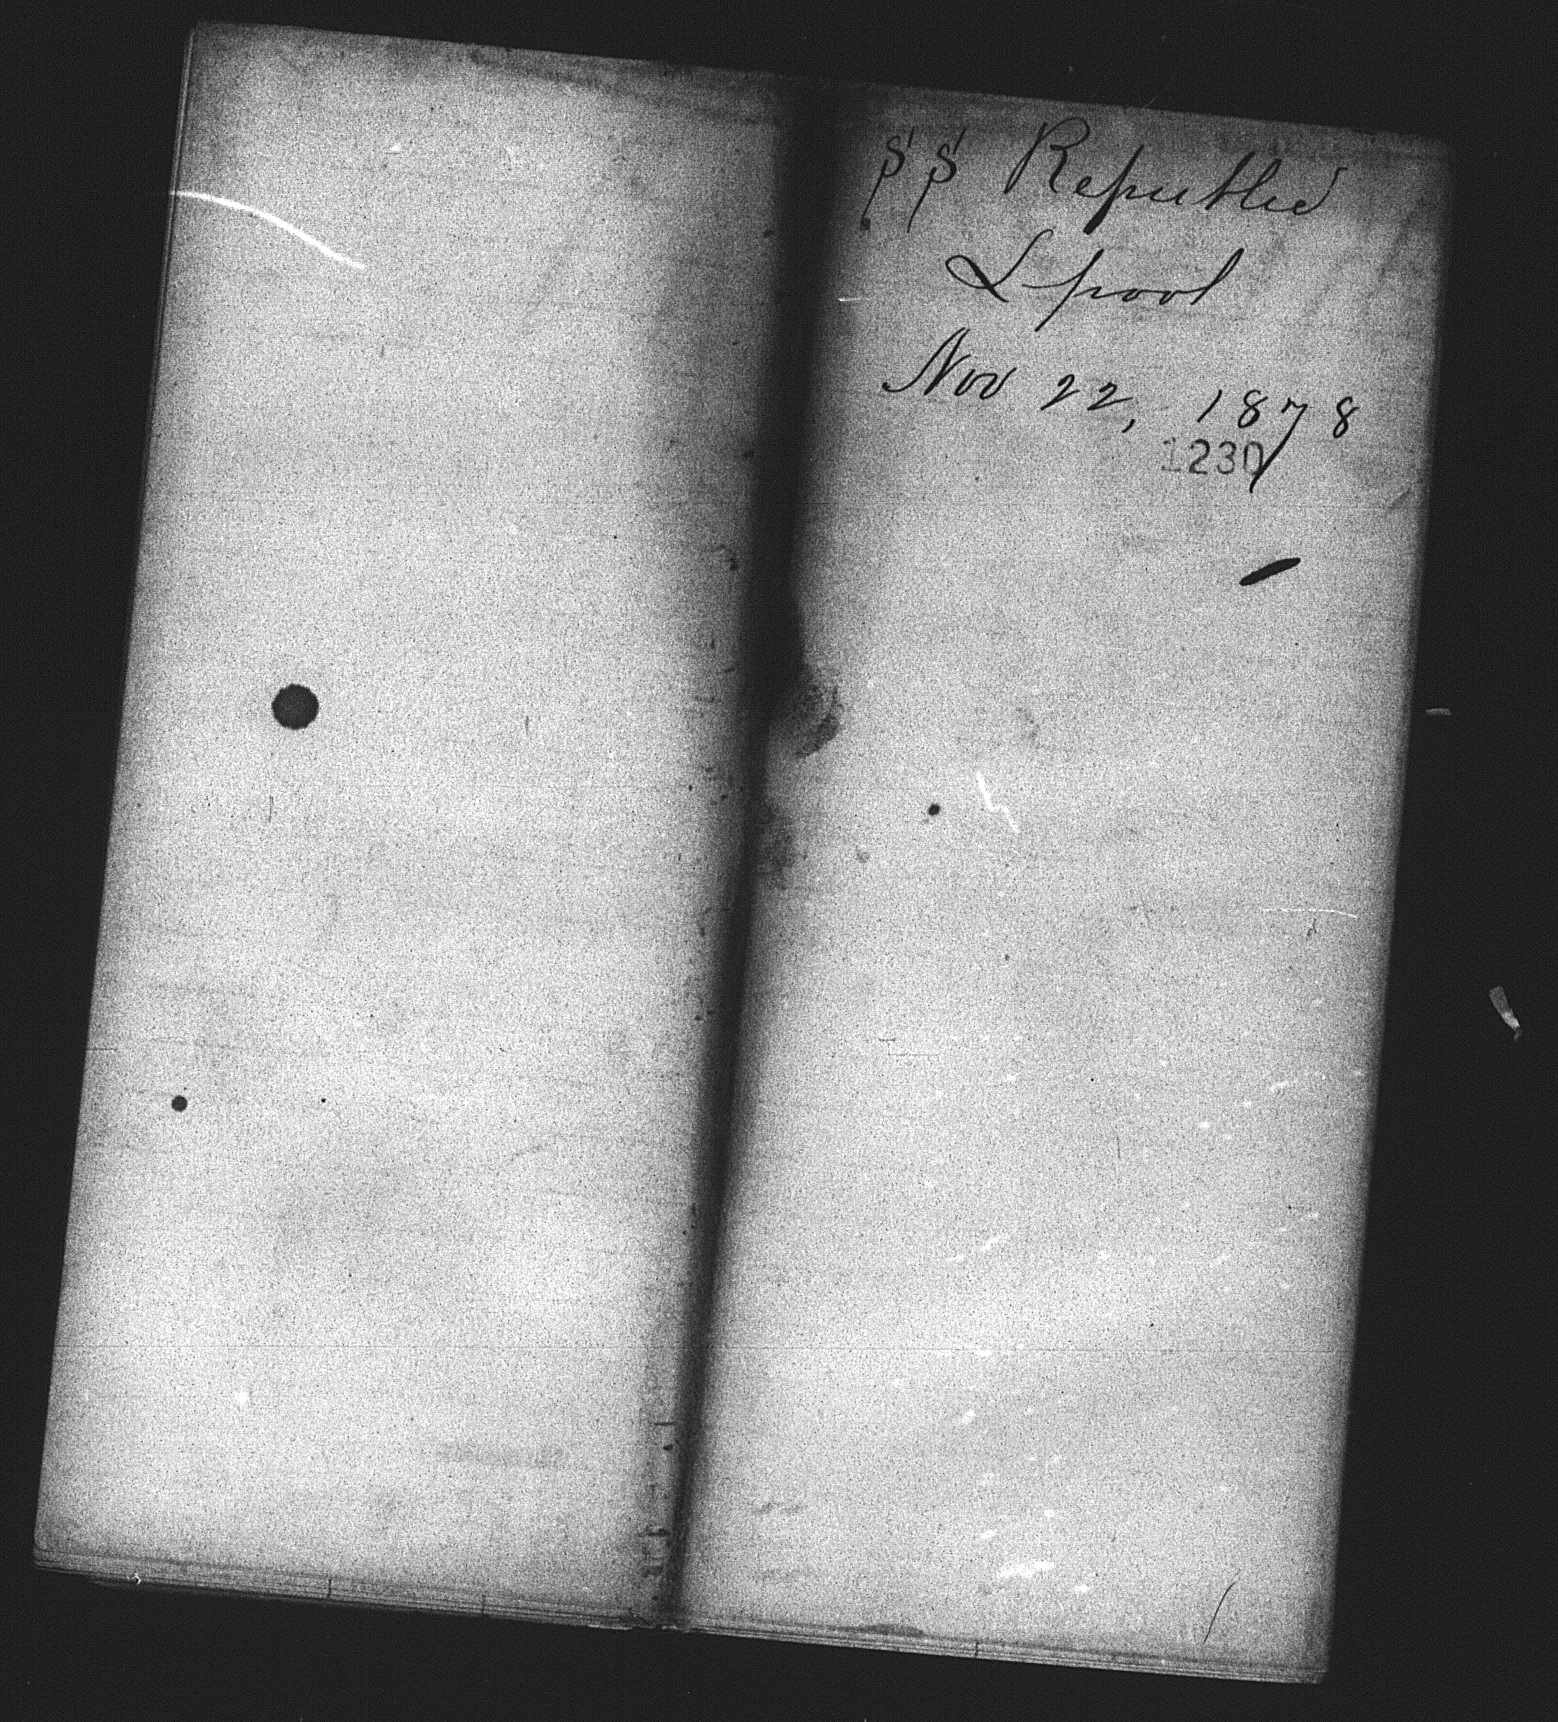 SS Republic
Lpool
Nov 22, 1878
1230